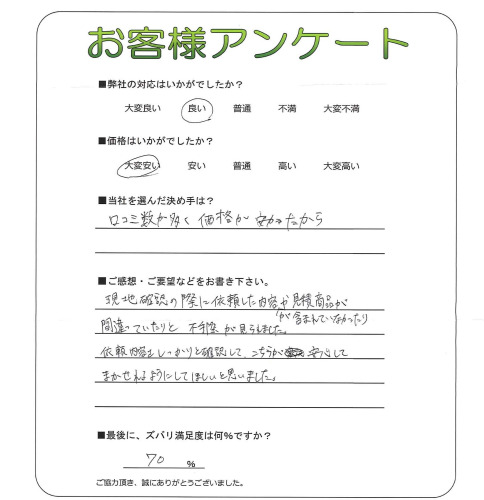 お客様アンケート
■弊社の対応はいかがでしたか？
大変良い 良い 普通 不満 大変不満
■価格はいかがでしたか？
大変安い 安い 普通 高い 大変高い
■当社を選んだ決め手は？
口コミ数が多く 価格が 安かったから
■ご感想・ご要望などをお書き下さい。
現地確認の際に依頼した内容や見積商品が
が含まれていなかったり
間違っていたりと 不手際が見られました。
依頼内容をしっかりと確認して、こちらが 安心して
まかせれるようにしてほしいと思いました。
■最後に、ズバリ満足度は何％ですか？
70 ％
ご協力頂き、誠にありがとうございました。